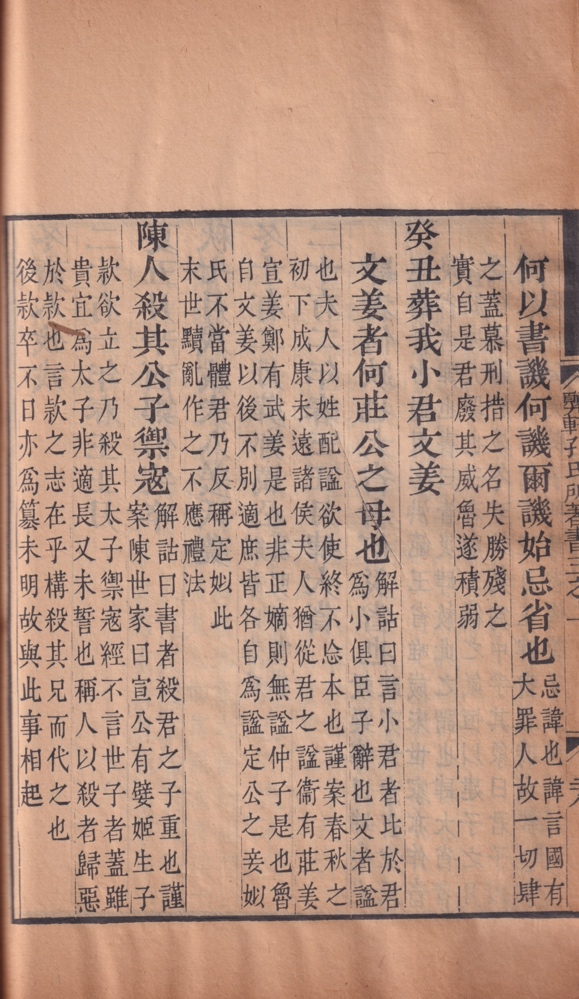 軒孔氏所著書三之一
何以書譏何譏爾譏始忌省也
忌諱也諱言國有
大罪人故一切肆
之蓋慕刑措之名失勝殘之
實自是君廢其威魯遂積弱
癸丑葬我小君文姜
文姜者何莊公之母也
解詁曰言小君者比於君
爲小俱臣子辭也文者諡
也夫人以姓配諡欲使終不忘本也謹案春秋之
初下成康未遠諸侯夫人猶從君之諡衞有莊姜
宣姜鄭有武姜是也非正嫡則無諡仲子是也魯
自文姜以後不別適庶皆各自爲諡定公之妾姒
氏不當體君乃反稱定姒此
末世黷亂作之不應禮法
陳人殺其公子禦寇
解詁曰書者殺君之子重也謹
案陳世家曰宣公有嬖姬生子
款欲立之乃殺其太子禦寇經不言世子者蓋雖
貴宜爲太子非適長又未誓也稱人以殺者歸惡
於款也言款之志在乎構殺其兄而代之也
後款卒不日亦爲篡未明故與此事相起